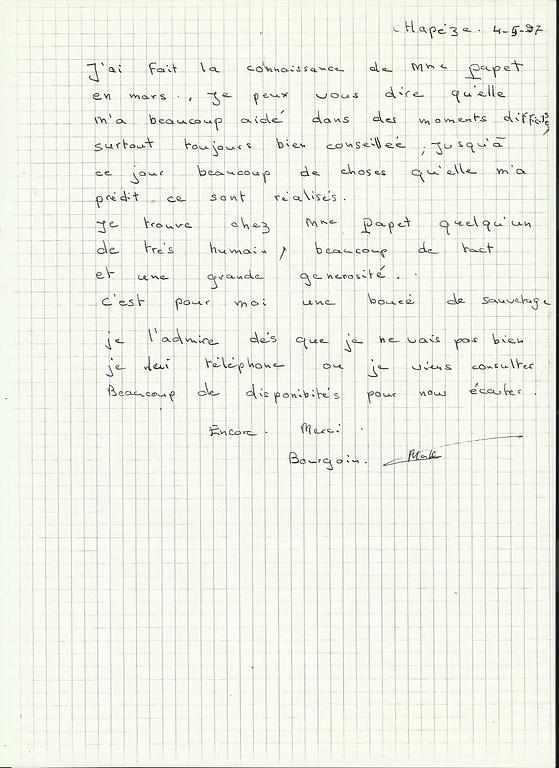 Mapéza. 4-5-97
J'ai fait la connaissance de Mme Papet
en mars., Je peux vous dire qu'elle
m'a beaucoup aidé dans des moments
surtout toujours bien conseilleé, Jusqu'à
ce jour beaucoup de choses qu'elle m'a
prédit ce sont réalisés.
Je trouve chez Mme Papet quelqu'un
de très humain, beaucoup de tact
et une grande generosité.
C'est pour moi une boueé de sauvetage
je l'admire dés que je ne vais pas bien
je téléphone ou je viens consulter
Beaucoup de disponibités pour nous écouter.
Encore. Merci.
Bourgoin.